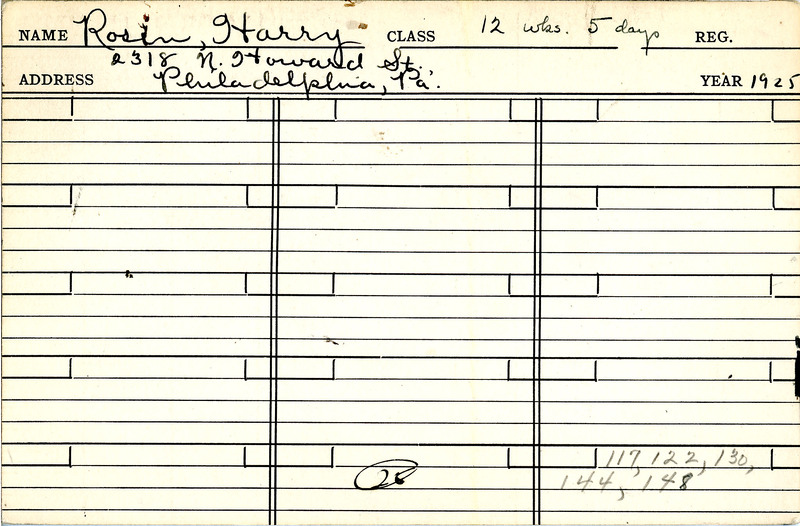 NAME Rosin, Harry CLASS 12 wks. 5 days REG.
2318 N. Howard St.
ADDRESS Philadelphia, Pa. YEAR 1925
117, 122, 130,
28
144, 148